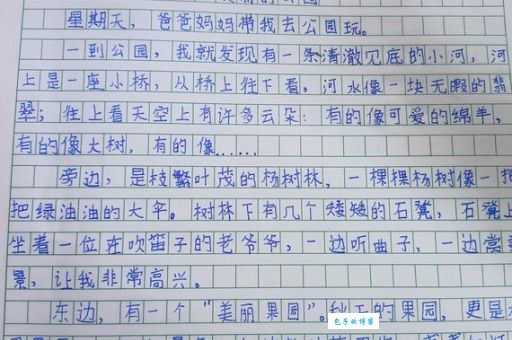 的公园
星期天，爸爸妈妈带我去公园玩。
一到公园，我就发现有一条清澈见底的小河，河
上是一座小桥，从桥上往下看，河水像一块无暇的翡
翠；往上看天空上有许多云朵：有的像可爱的绵羊，
有的像大树，有的像……
旁边，是枝繁叶茂的杨树林，一棵棵杨树像一把
把绿油油的大伞。树林下有几个矮矮的石凳，石凳上
坐着一位在吹笛子的老爷爷，一边听曲子，一边赏美
景，让我非常高兴。
东边，有一个“美丽果园”。秋天的果园，更是
包子的博客